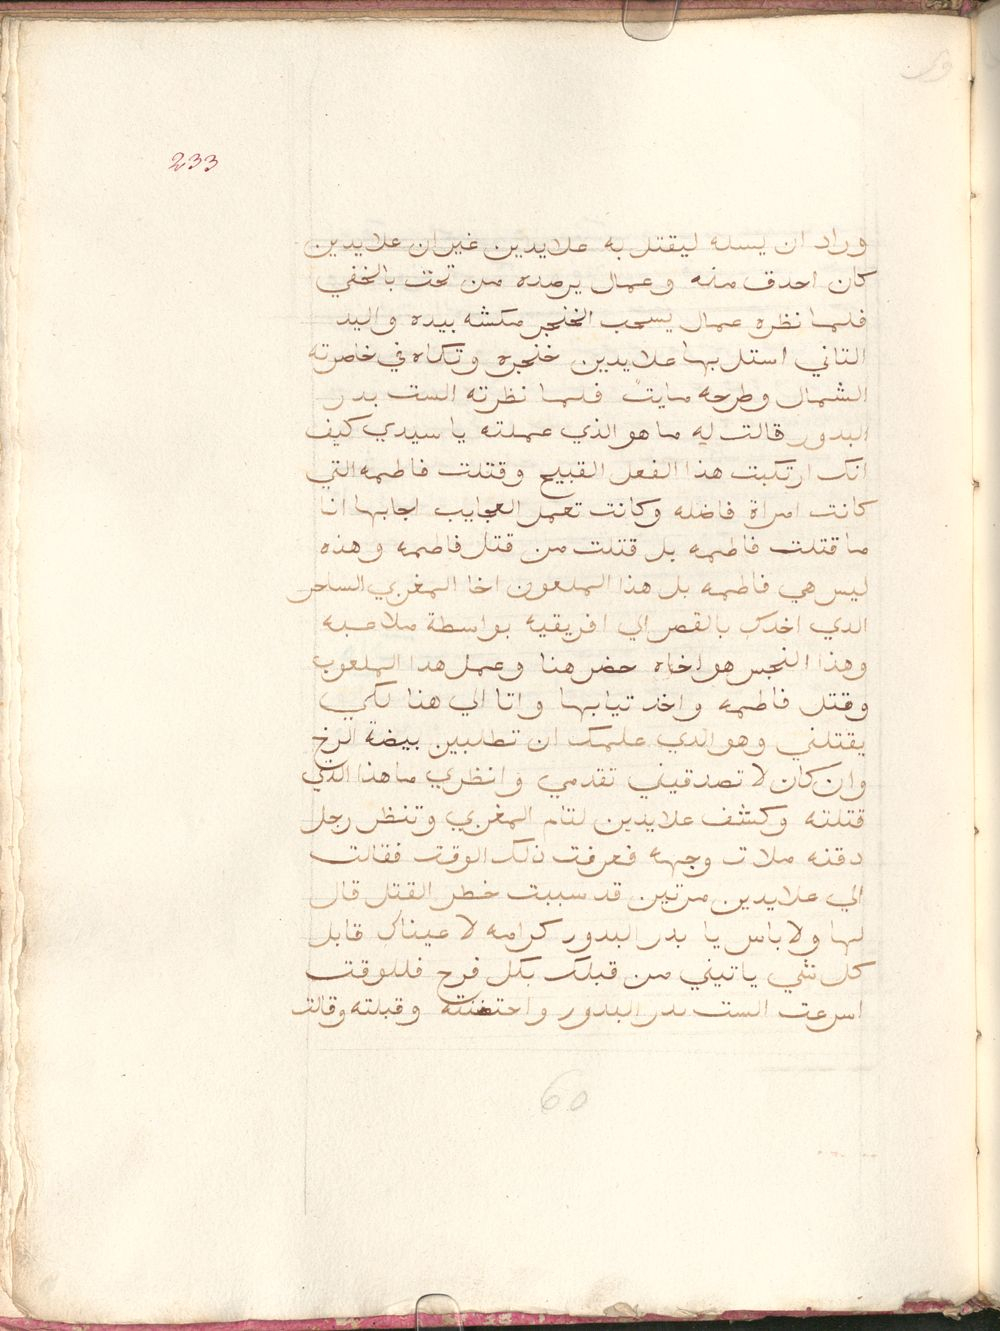 233
وراد ان يسله ليقتل به علايدين غير ان علايدين
كان احدق منه وعمال يرصده من تحت بالخفي
فلما نظره عمال يسحب الخنجر مكشه بيده واليد
التاني استل بها علايدين خنجره وتكاه في خاصرته
الشمال وطرحه مايتً فلما نظرته الست بدر
البدور قالت له ما هو الذي عملته يا سيدي كيف
انك ارتكبت هذا الفعل القبيح وقتلت فاطمه التي
كانت امراة فاضله وكانت تعمل العجايب اجابها انا
ما قتلت فاطمه بل قتلت من قتل فاطمه وهذه
ليس هي فاطمه بل هذا الملعون اخا المغربي الساحر
الدي اخدك بالقصر الي افريقيه بواسطة ملاعبه
وهذا النجس هو اخاه حضر هنا وعمل هدا الملعوب
وقتل فاطمه واخد تيابها واتا الي هنا لكي
يقتلني وهو الدي علمك ان تطلبين بيضة الرخ
وان كان لا تصدقيني تقدمي وانظري ما هذا الذي
قتلته وكشف علايدين لتام المغربي وتنظر رجل
دقنه ملات وجهه فعرفت ذلك الوقت فقالت
الي علايدين مرتين قد سببت خطر القتل قال
لها ولا باس يا بدر البدور كرامه لاعيناك قابل
كل شي ياتيني من قبلك بكل فرح فللوقت
اسرعت الست بدر البدور واحتضنته وقبلته وقالت
60